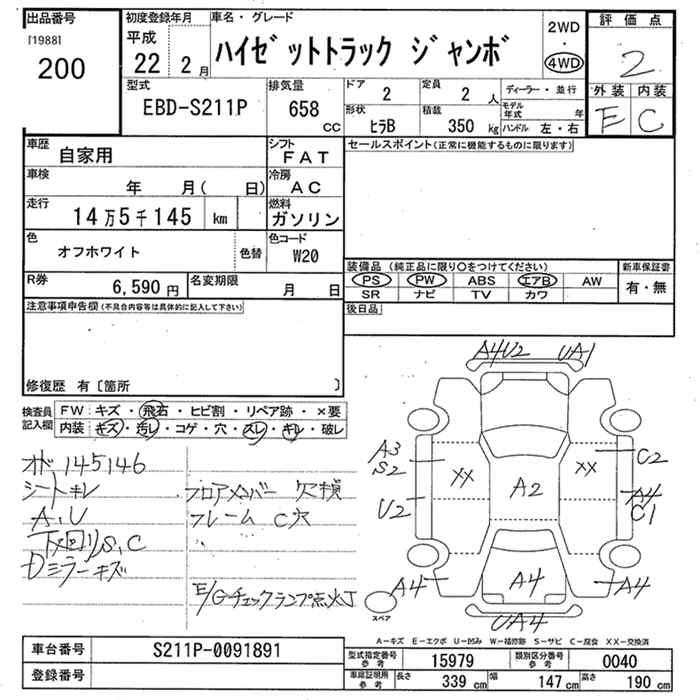 出品番号
[1988]
200
初度登録年月
平成
22 2月
車名・グレード
ハイゼットトラック ジャンボ
2WD
・
4WD
評価点
2
外装 内装
E C
型式
EBD-S211P
排気量
658
CC
ドア
2
定員
2 人
形状
ヒラB
積載
350 kg
ディーラー・並行
モデル年式 年
ハンドル 左・右
車歴
自家用
シフト
FAT
セールスポイント(正常に機能するものに限ります)
車検
年 月( 日)
冷房
AC
走行
14万5千145 km
燃料
ガソリン
色
オフホワイト
色替
色コード
W20
装備品 (純正品に限り○をつけてください)
PS PW ABS エアB AW
SR ナビ TV カワ
新車保証書
有・無
R券
6,590円
名変期限
月 日
後日品
注意事項申告欄(不具合内容等は具体的に記入して下さい)
修復歴 有〔箇所 〕
検査員記入欄
FW キズ・飛石・ヒビ割・リペア跡・×要
内装 キズ・汚レ・コゲ・穴・スレ・キレ・破レ
オド 145146
シートキレ
A,U
下回リS,C
Dミラーキズ
フロアメンバー 欠損
フレーム C穴
〃
E/Gチェックランプ点灯
A4U2 UA1
A3
S2
XX XX
C2
U2
A2
A4
C1
A4
A4
A4
UA4
スペア
A-キズ E-エクボ U-凹み W-補修跡 S-サビ C-腐食 XX-交換済
車台番号
S211P-0091891
登録番号
型式指定番号 参考
15979
類別区分番号 参考
0040
車庫証明用 参考
長さ 339 cm
幅 147 cm
高さ 190 cm